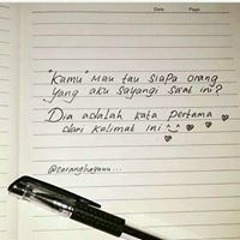 Date Page
"Kamu" Mau tau siapa orang
yang aku sayangi saat ini?
Dia adalah kata pertama
dari kalimat ini ^_^
@saranghayauu...